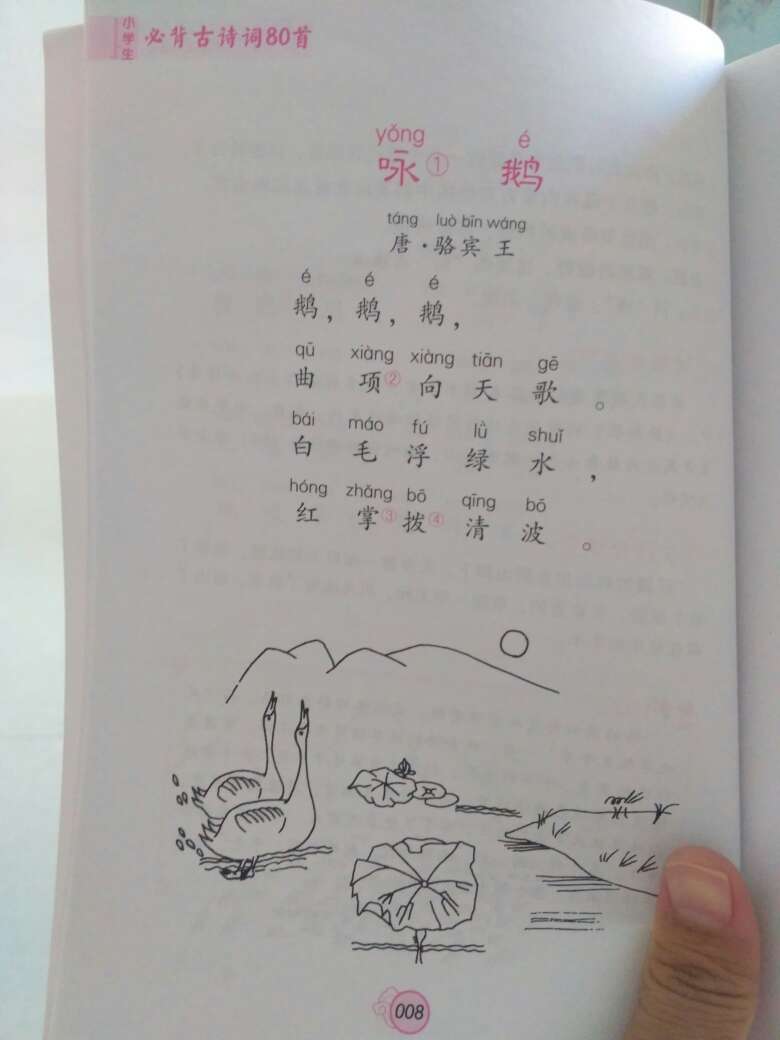 小学生 必背古诗词80首
yǒng é
咏① 鹅
táng luò bīn wáng
唐·骆宾王
é é é
鹅，鹅，鹅，
qū xiàng xiàng tiān gē
曲项②向天歌。
bái máo fú lǜ shuǐ
白毛浮绿水，
hóng zhǎng bō qīng bō
红掌③拨④清波。
008